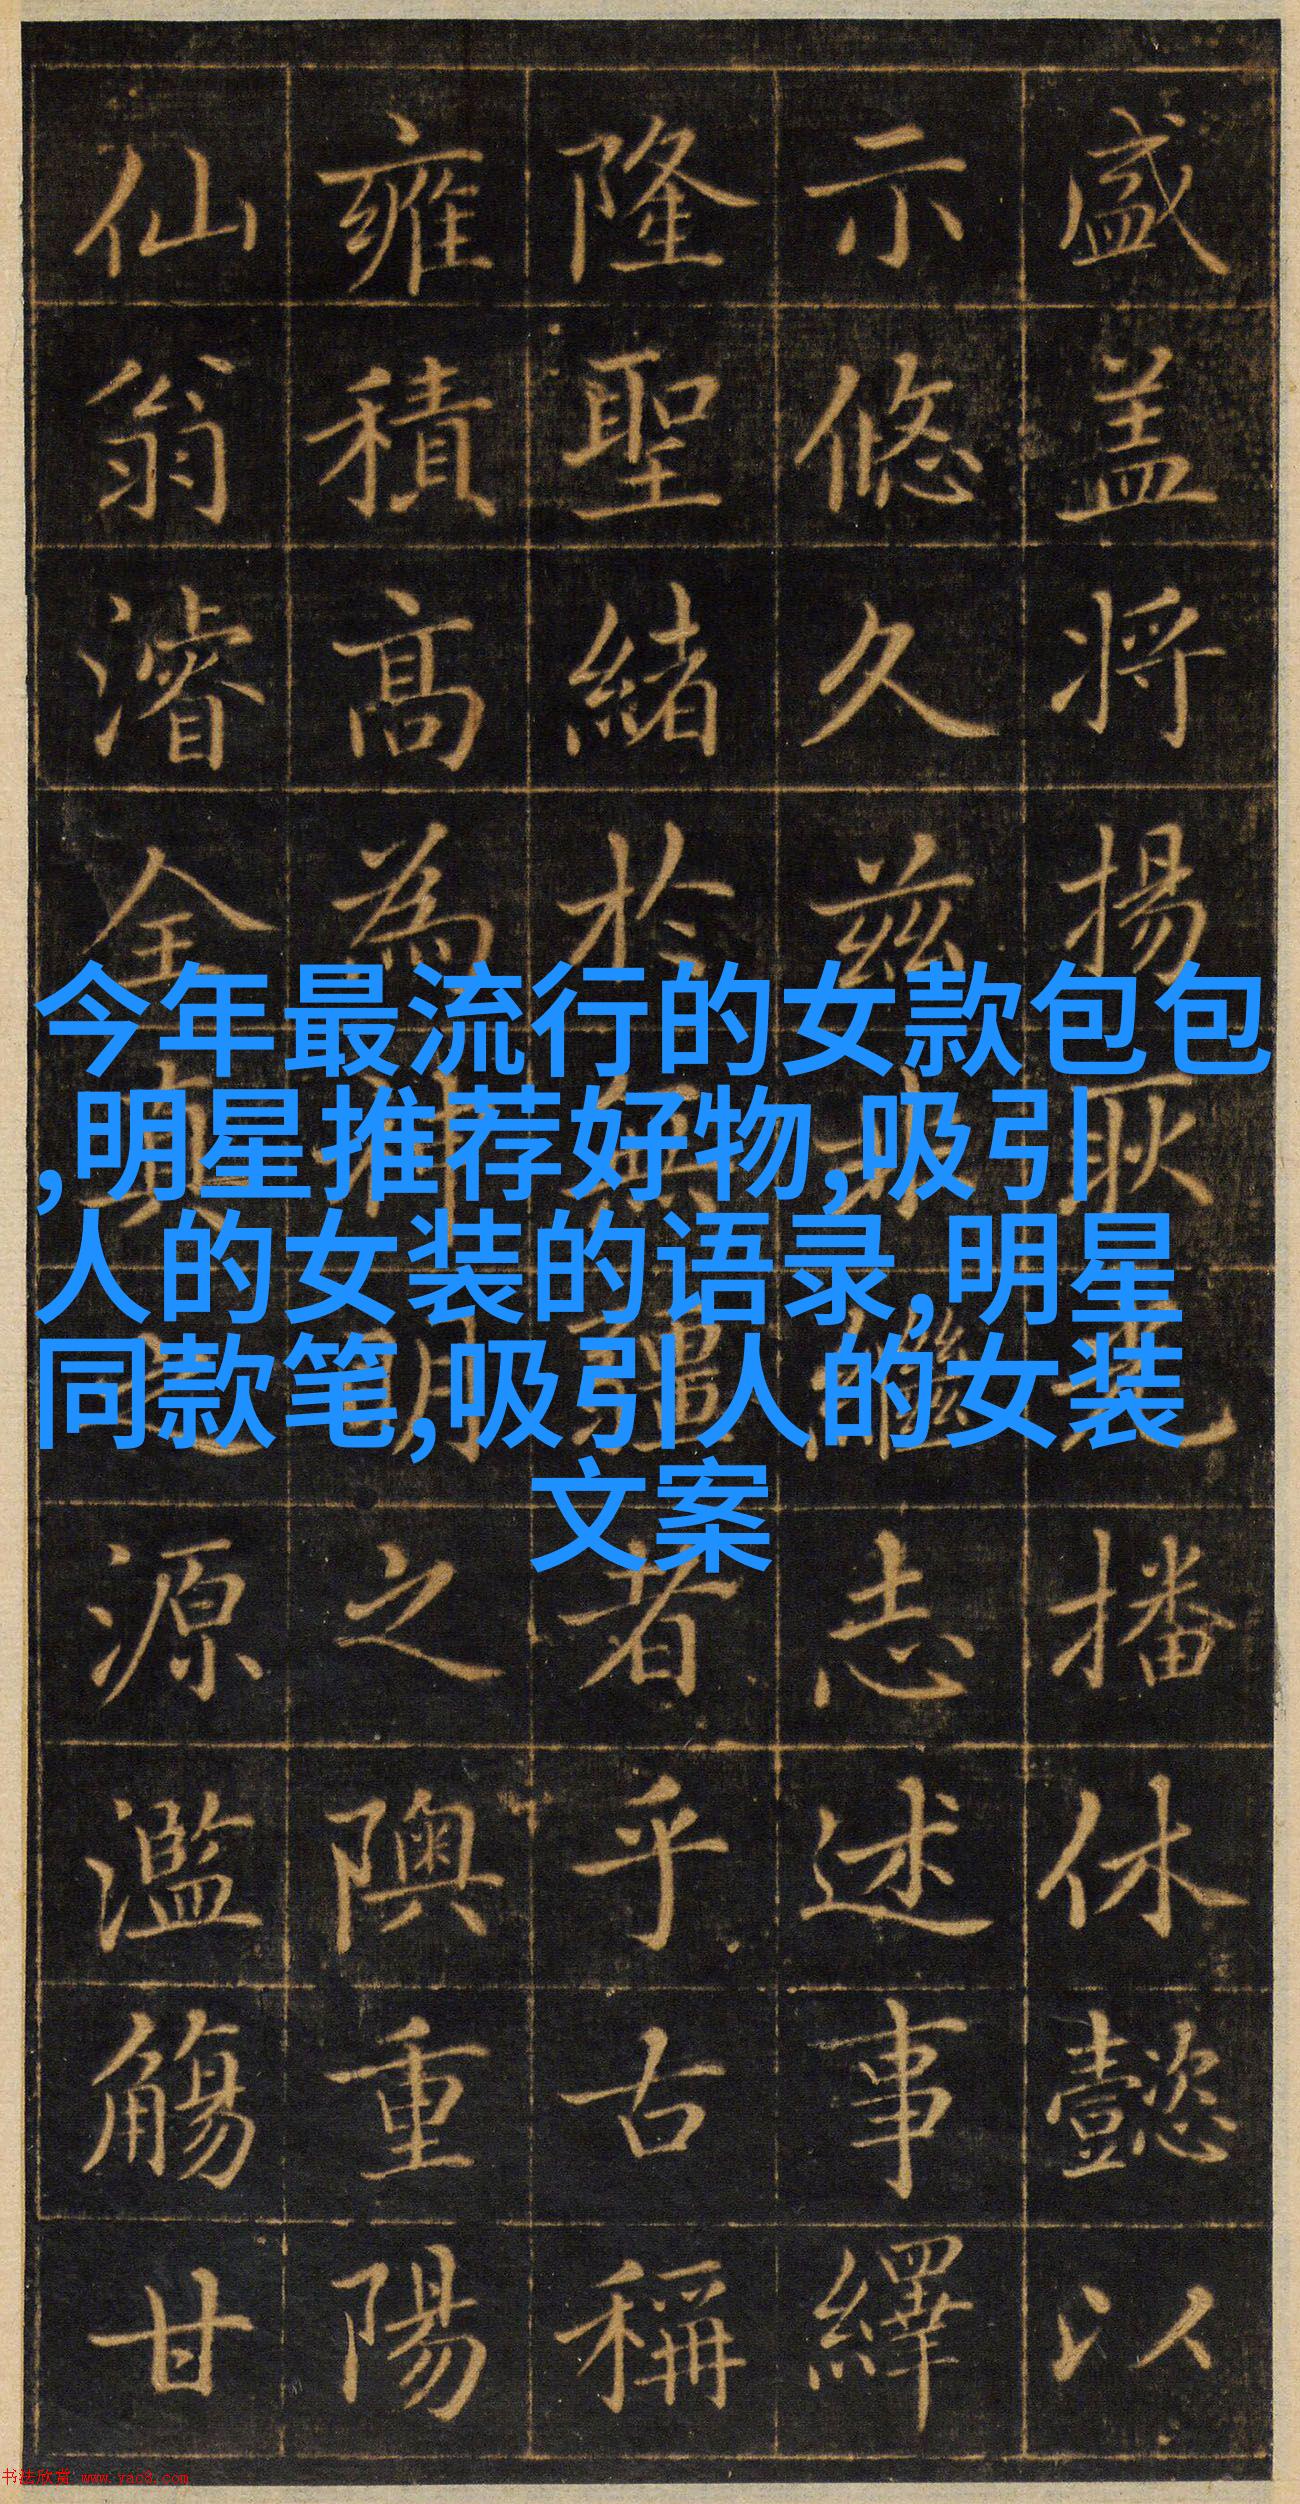 盛盖将揚耿光播休懿以
示悠久兹繼志述事繹
隆聖緒於無疆者乎古稱
雍積高為神明之隩重陽
仙翁濬全真源濫觴甘
今年最流行的女款包包
,明星推荐好物,吸引
人的女装的语录,明星
同款笔,吸引人的女装
文案
书法欣赏 www.yac8.com